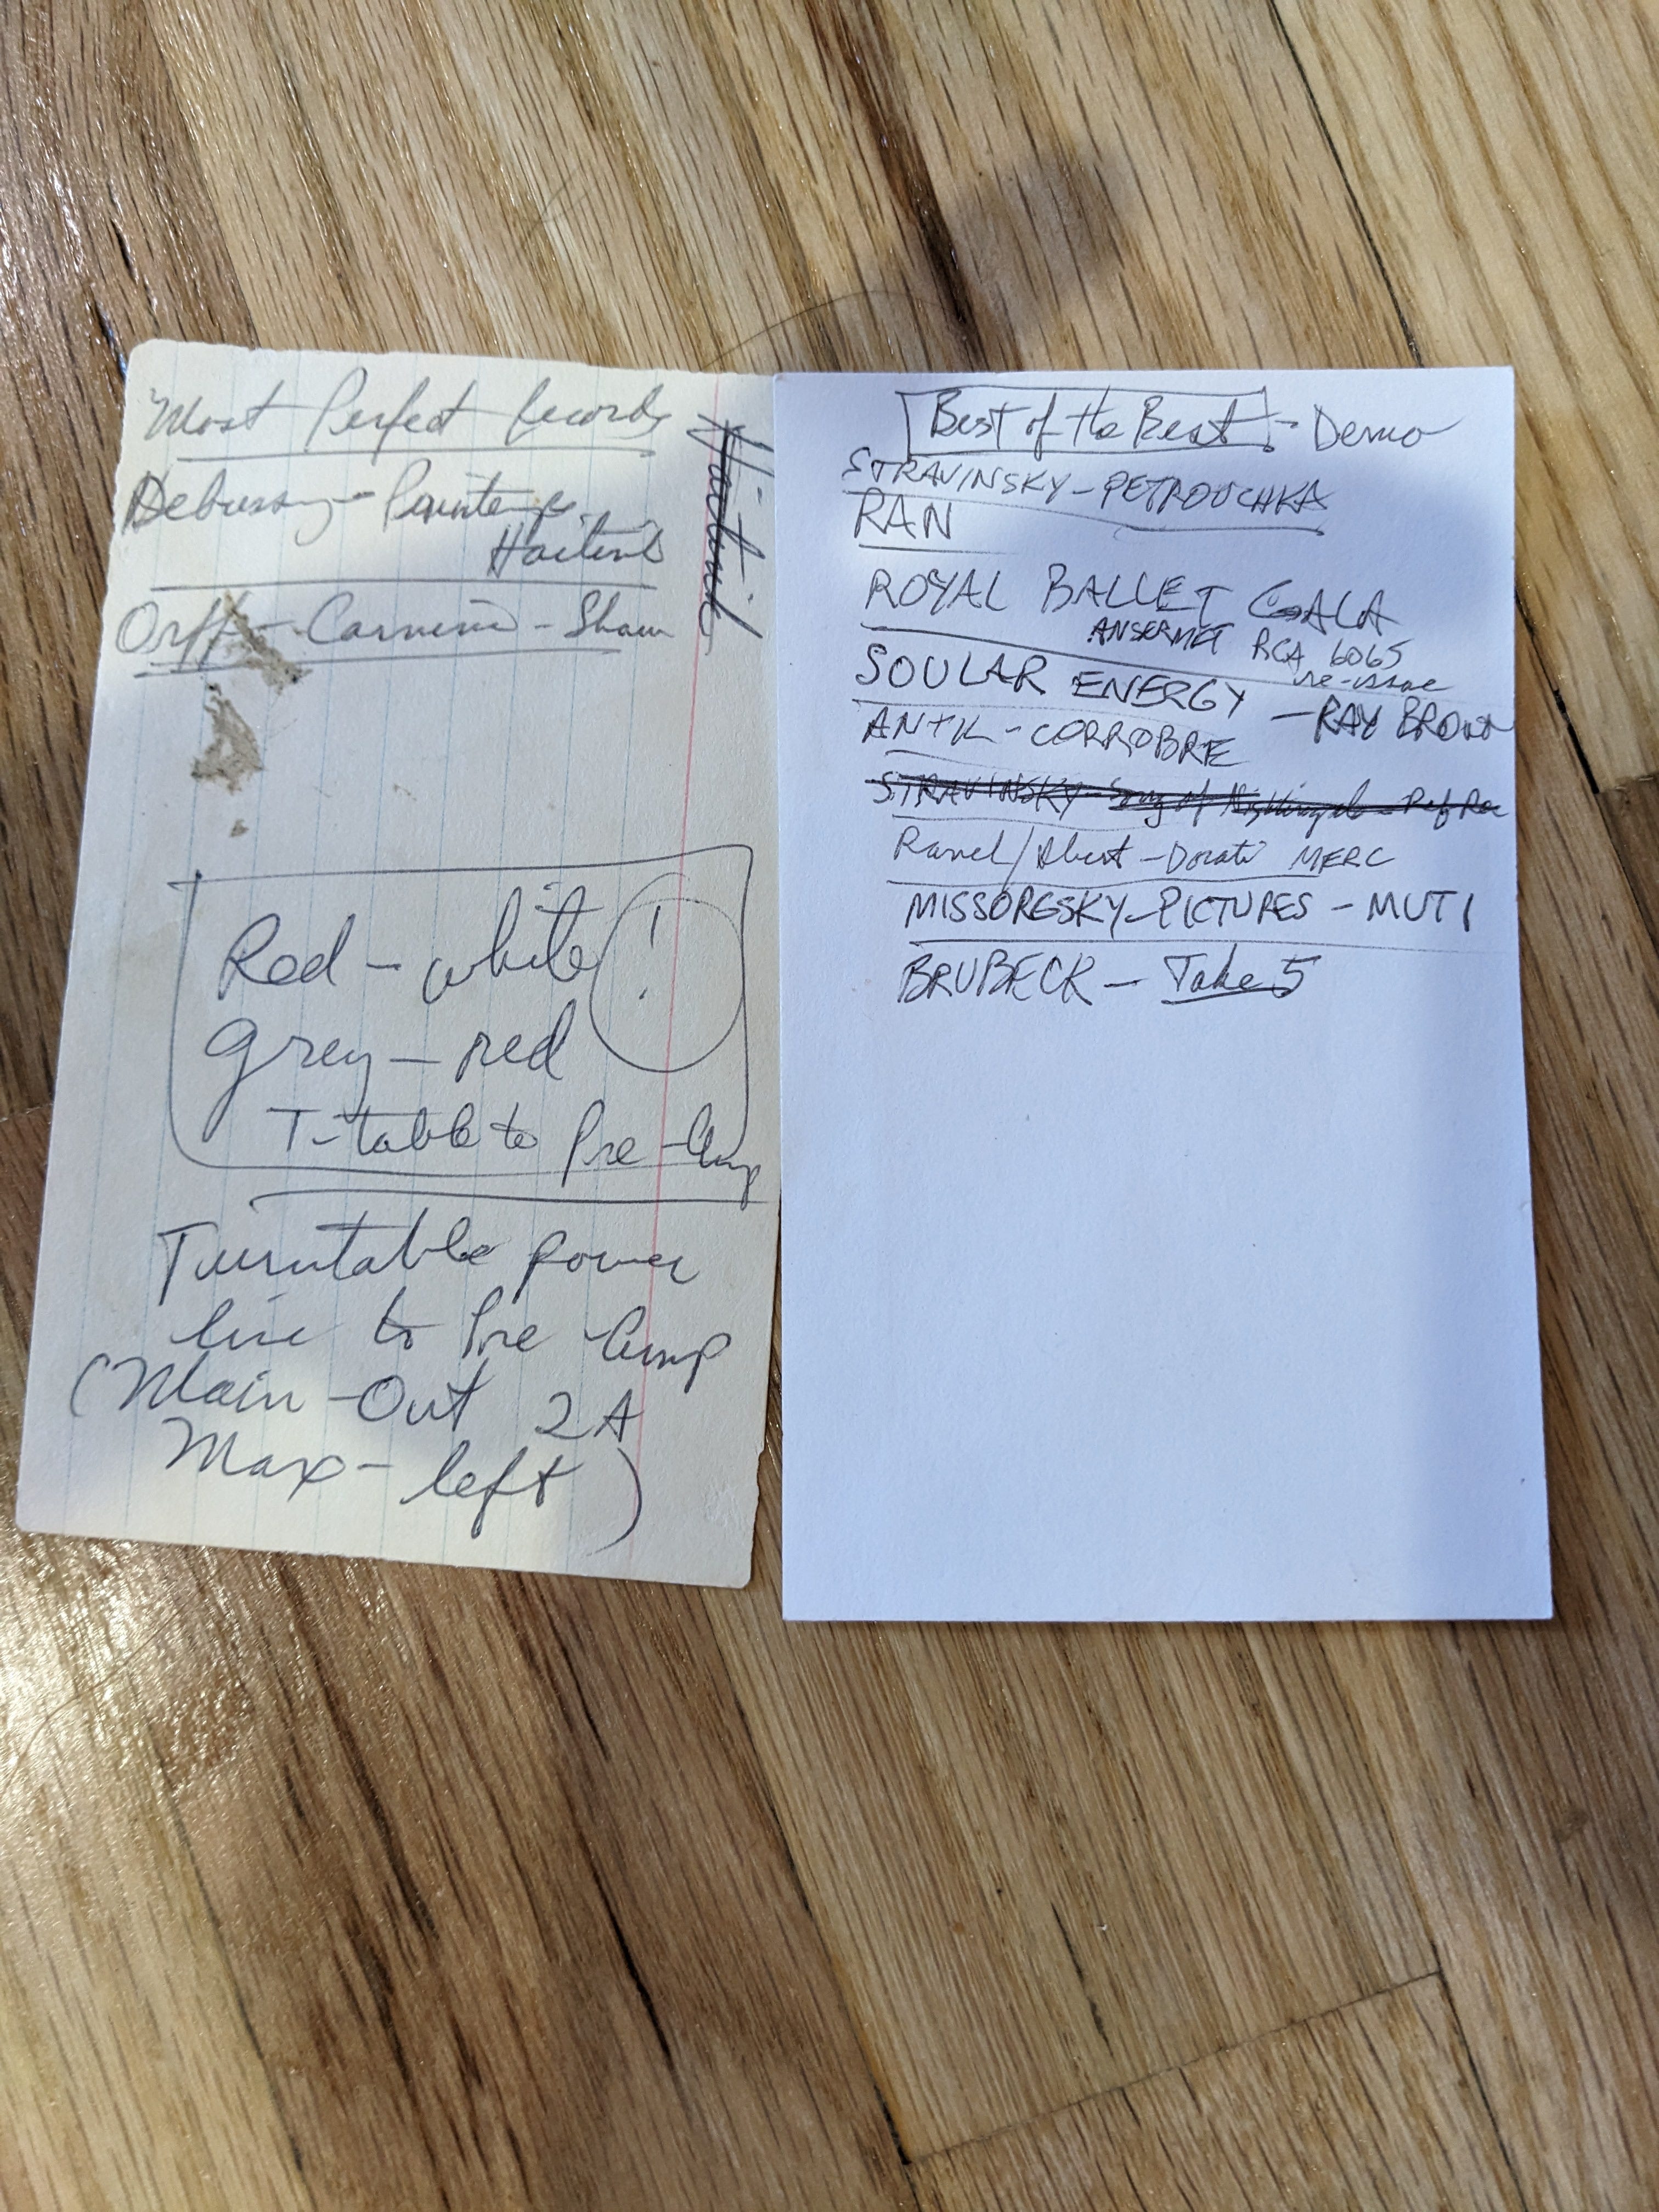 Most Perfect Records
Debussy - Printemps
Haitink
Haitink
Orff - Carmina - Shaw
Red - white !
grey - red
T-table to Pre-Amp
Turntable power
line to Pre Amp
(Main-Out 2A
Max - left)
Best of the Best - Demo
STRAVINSKY - PETROUCHKA
RAN
ROYAL BALLET GALA
ANSERMET RCA 6065
re-issue
SOULAR ENERGY - RAY BROWN
ANTIL - CORROBRE
STRAVINSKY - Song of Nightingale - Ref Rec
Ravel / - Dorati MERC
MISSORGSKY - PICTURES - MUTI
BRUBECK - Take 5